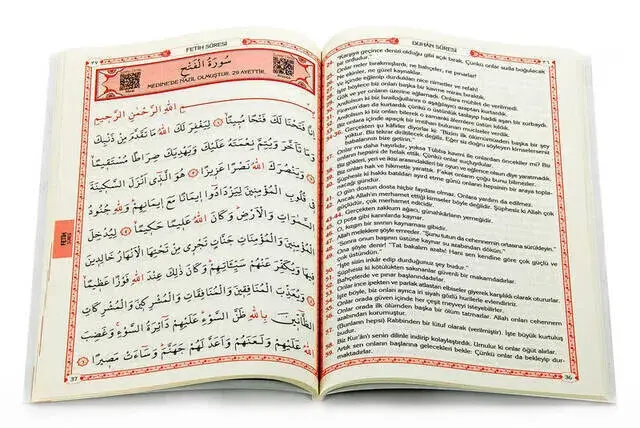 DUHÂN SÛRESİ
"Karşıya geçince denizi olduğu gibi açık bırak. Çünkü onlar suda boğulacak
bir ordudur."
Onlar neler bırakmışlardı, ne bahçeler, ne pınarlar!
Ne ekinler, ne güzel konaklar.
Ve içinde eğlenip durdukları nice nimetler ve refah!
İşte böylece biz onları başka bir kavme miras bıraktık.
Gök ve yer onların üzerine ağlamadı. Onlara mühlet de verilmedi.
Andolsun ki biz İsrailoğullarını o aşağılayıcı azaptan kurtardık.
Firavun'dan da kurtardık çünkü o üstünlük taslayıp haddi aşan bir zorbaydı.
Andolsun ki biz onları bilerek o zamanki âlemlere üstün kıldık.
Biz onlara içinde apaçık bir imtihan bulunan mucizeler verdik.
34-36. Gerçekten şu kâfirler diyorlar ki: "Bizim ilk ölümümüzden başka bir şey
yoktur. Biz tekrar diriltilecek değiliz. Eğer siz doğru söyleyen kimselerseniz
babalarımızı bize getirin."
37. Onlar mı daha hayırlıdır, yoksa Tübba kavmi ile onlardan öncekiler mi? Biz
onların hepsini de helak ettik. Çünkü onlar suçluydular.
38. Biz gökleri, yeri ve ikisi arasındakileri bir oyun ve eğlence olsun diye yaratmadık.
39. Biz onları hak ve hikmetle yarattık. Fakat onların çoğu bunu bilmezler.
40. Şüphesiz ki hakkı batıldan ayırd etme günü onların hepsinin bir araya topla-
nacağı gündür.
41. O gün dostun dosta hiçbir faydası olmaz. Onlara yardım da edilmez.
42. Ancak Allah'ın merhamet ettiği kimseler böyle değildir. Şüphesiz ki Allah çok
güçlüdür, çok merhamet edicidir.
43-44. Gerçekten zakkum ağacı, günahkârların yemeğidir.
45. O pota gibi karınlarda kaynar.
46. O, kızgın bir sıvının kaynaması gibidir.
47. Allah meleklere şöyle emreder: "Şunu tutun da cehennemin ortasına sürükleyin."
48. "Sonra onun başının üstüne kaynar su azabından dökün."
49. Ona şöyle denir! "Tat bakalım azabı! Hani sen kendine göre çok güçlü ve
çok üstündün!
50. "İşte sizin inkâr edip durduğunuz şey budur."
51. Şüphesiz ki kötülükten sakınanlar güvenli bir makamdadırlar.
52. Bahçelerde ve pınar başlarındadırlar.
53. Onlar ince ipekten ve parlak atlastan elbiseler giyerek karşılıklı olarak otururlar.
54. İşte böyle, biz onları ayrıca iri siyah gözlü hurilerle evlendiririz.
55. Onlar orada güven içinde her çeşit meyveyi isteyebilirler.
56. Onlar orada ilk ölümden başka bir ölüm tatmazlar. Allah onları cehennem
azabından korumuştur.
57. (Bunların hepsi) Rabbinden bir lütuf olarak (verilmiştir). İşte büyük kurtuluş
budur.
58. Biz Kur'ân'ı senin dilinle indirip kolaylaştırdık. Umulur ki onlar öğüt alırlar.
59. Artık sen onların başlarına gelecekleri bekle: Çünkü onlar da bekleyip dur-
maktadırlar.
36
FETİH SÛRESİ
٣٧
سُورَةُ الْفَتْحِ
MEDİNE'DE NAZİL OLMUŞTUR. 29 AYETTİR.
بِسْمِ اللهِ الرَّحْمٰنِ الرَّحِيمِ
اِنَّا فَتَحْنَا لَكَ فَتْحًا مُبِينًا ﴿١﴾ لِيَغْفِرَ لَكَ اللهُ مَا تَقَدَّمَ مِنْ ذَنْبِكَ
وَمَا تَاَخَّرَ وَيُتِمَّ نِعْمَتَهُ عَلَيْكَ وَيَهْدِيَكَ صِرَاطًا مُسْتَقِيمًا ﴿٢﴾
وَيَنْصُرَكَ اللهُ نَصْرًا عَزِيزًا ﴿٣﴾ هُوَ الَّذِى اَنْزَلَ السَّكِينَةَ
فِى قُلُوبِ الْمُؤْمِنِينَ لِيَزْدَادُوا اِيمَانًا مَعَ اِيمَانِهِمْ وَلِلّٰهِ جُنُودُ
السَّمٰوَاتِ وَالْاَرْضِ وَكَانَ اللهُ عَلِيمًا حَكِيمًا ﴿٤﴾ لِيُدْخِلَ
الْمُؤْمِنِينَ وَالْمُؤْمِنَاتِ جَنَّاتٍ تَجْرِى مِنْ تَحْتِهَا الْاَنْهَارُ خَالِدِينَ
فِيهَا وَيُكَفِّرَ عَنْهُمْ سَيِّئَاتِهِمْ وَكَانَ ذٰلِكَ عِنْدَ اللهِ فَوْزًا عَظِيمًا ﴿٥﴾
وَيُعَذِّبَ الْمُنَافِقِينَ وَالْمُنَافِقَاتِ وَالْمُشْرِكِينَ وَالْمُشْرِكَاتِ
الظَّانِّينَ بِاللهِ ظَنَّ السَّوْءِ عَلَيْهِمْ دَائِرَةُ السَّوْءِ وَغَضِبَ
اللهُ عَلَيْهِمْ وَلَعَنَهُمْ وَاَعَدَّ لَهُمْ جَهَنَّمَ وَسَاءَتْ مَصِيرًا ﴿٦﴾
FETİH
37